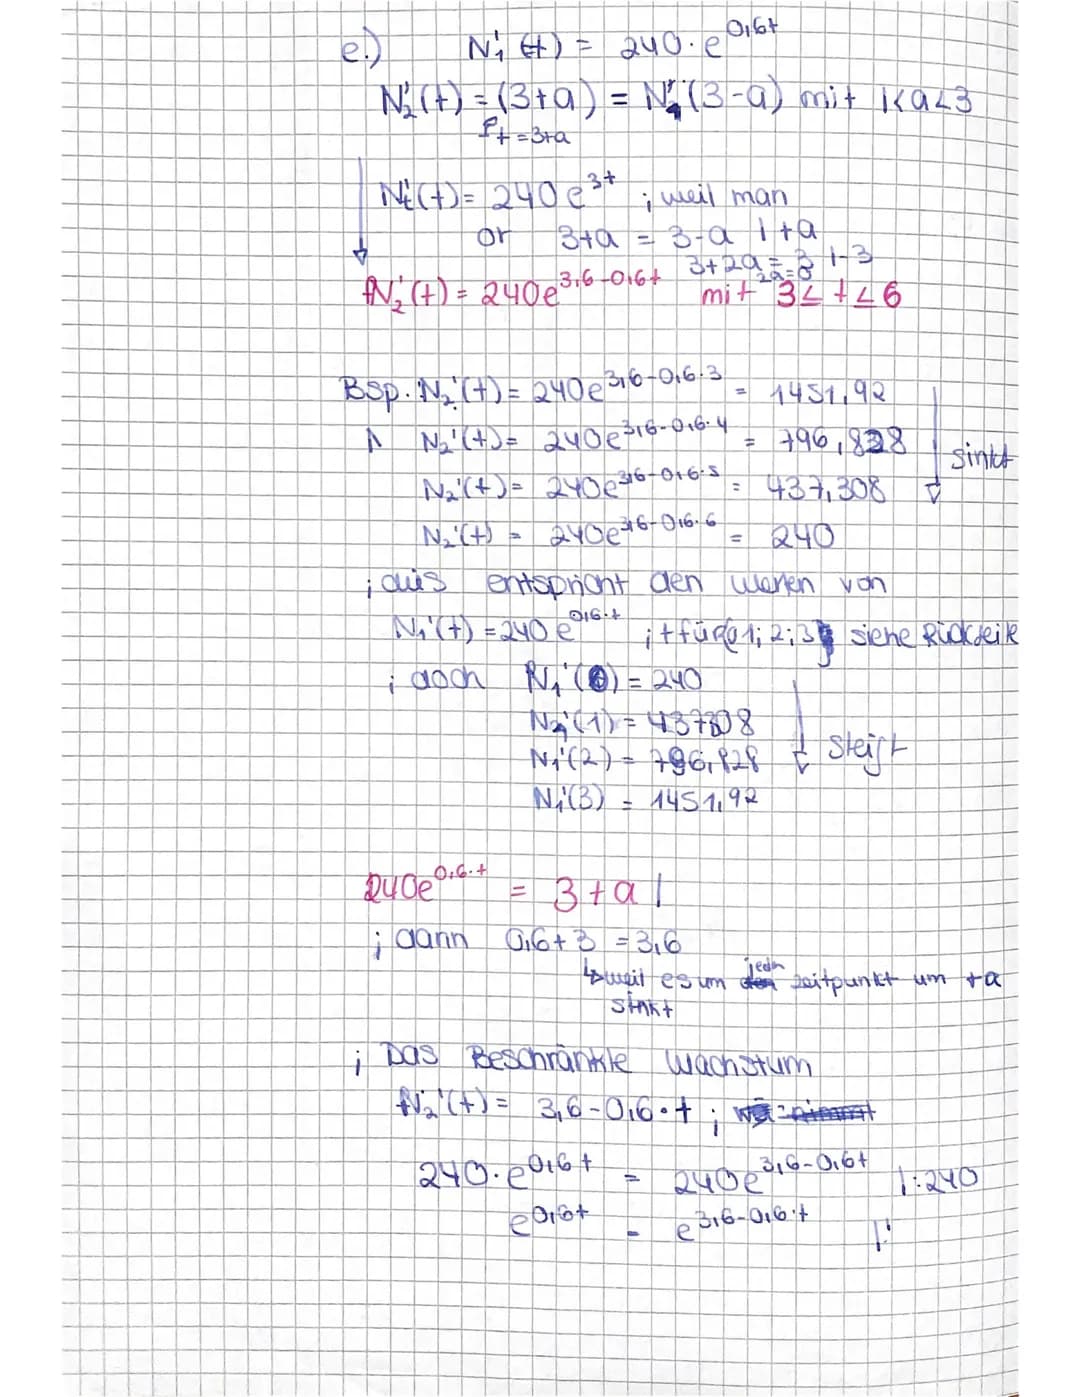 e.) N₁'(t) = 240·e^0,6t
N₂'(t) = (3+a) = N₁'(3-a) mit 1<a<3
Pt = 3+a
N₂'(t) = 240e^3t ; weil man
or 3+a = 3-a |+a
3+2a = 3 |-3
2a=0
N₂'(t) = 240e^3,6-0,6t mit 3≤t≤6
Bsp. N₂'(t) = 240e^3,6-0,6·3 = 1451,92
N₂'(t) = 240e^3,6-0,6·4 = 796,828
sinkt
N₂'(t) = 240e^3,6-0,6·5 = 437,308
N₂'(t) = 240e^3,6-0,6·6 = 240
; dies entspricht den werten von
N₁'(t) = 240e^0,6·t ; t für {0 1; 2; 3} siehe Rückseite
; doch N₁'(0) = 240
N₁'(1) = 437308
steigt
N₁'(2) = 796,828
N₁'(3) = 1451,92
240e^0,6·t = 3+a |
; dann 0,6+3 = 3,6
↳ weil es um jedn zeitpunkt um +a
sinkt
; Das Beschränkte Wachstum
N₂'(t) = 3,6-0,6·t ;
240·e^0,6t = 240e^3,6-0,6t |:240
e^0,6t = e^3,6-0,6·t |: